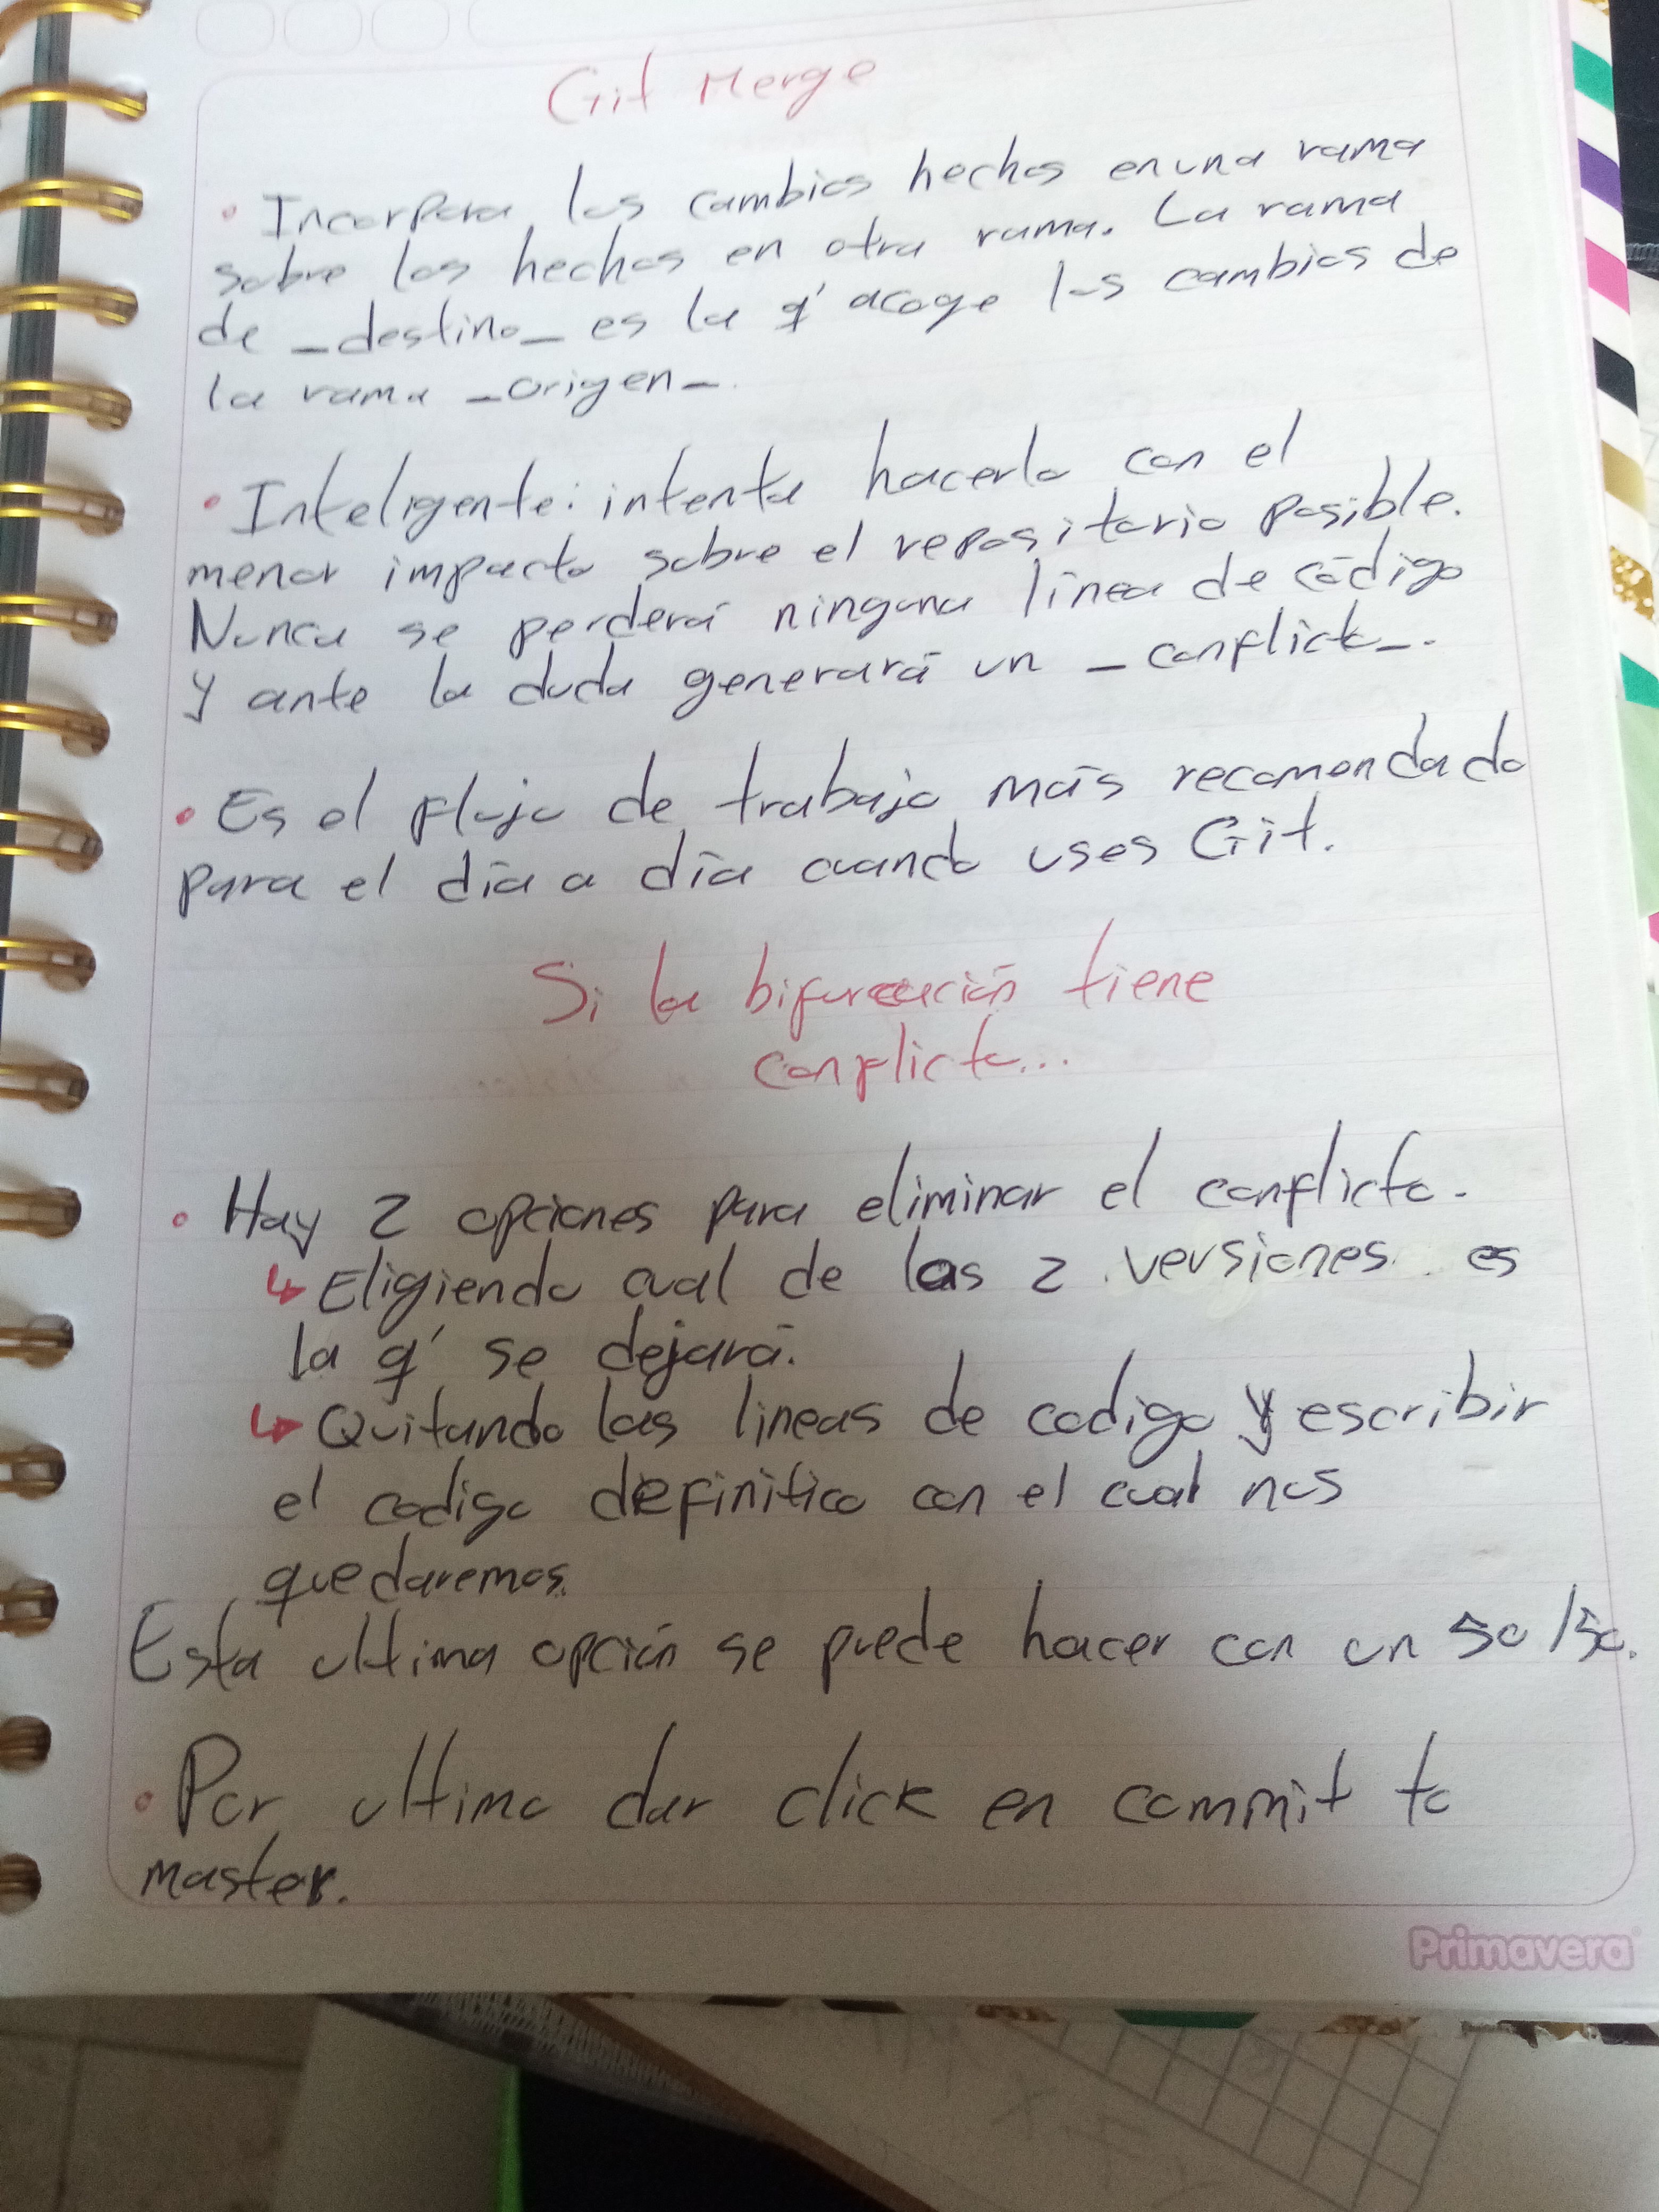 Git Merge
• Incorpora los cambios hechos en una rama
sobre los hechos en otra rama. La rama
de _destino_ es la q' acoge los cambios de
la rama _origen_.
• Inteligente: intenta hacerlo con el
menor impacto sobre el repositorio posible.
Nunca se perderá ninguna línea de código
y ante la duda generará un _conflicto_.
• Es el flujo de trabajo más recomendado
para el día a día cuando uses Git.
Si la bifurcación tiene
conflicto...
• Hay 2 opciones para eliminar el conflicto.
↳ Eligiendo cual de las 2 versiones es
la q' se dejará.
↳ Quitando las lineas de codigo y escribir
el codigo definitico con el cual nos
quedaremos.
Esta ultima opción se puede hacer con un
• Por ultimo dar click en commit to
master.
Primavera